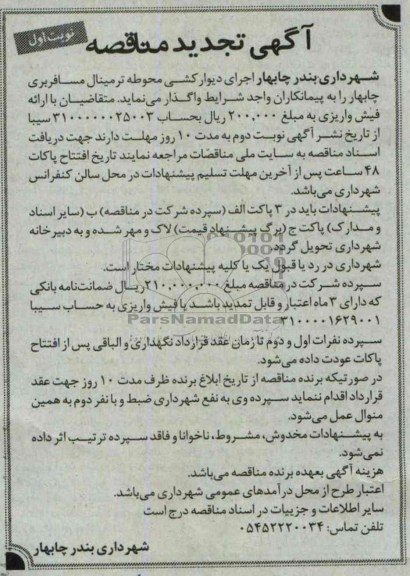 نوبت اول
آگهی تجدید مناقصه
شهرداری بندر چابهار اجرای دیوار کشی محوطه ترمینال مسافربری
چابهار را به پیمانکاران واجد شرایط واگذار می‌نماید. متقاضیان با ارائه
فیش واریزی به مبلغ ۲۰۰,۰۰۰ ریال بحساب ۳۱۰۰۰۰۰۰۲۵۰۰۳ سیبا
از تاریخ نشر آگهی نوبت دوم به مدت ۱۰ روز مهلت دارند جهت دریافت
اسناد مناقصه به سایت ملی مناقصات مراجعه نمایند تاریخ افتتاح پاکات
۴۸ ساعت پس از آخرین مهلت تسلیم پیشنهادات در محل سالن کنفرانس
شهرداری می‌باشد.
پیشنهادات باید در ۳ پاکت الف (سپرده شرکت در مناقصه) ب (سایر اسناد
و مدارک) پاکت ج (برگ پیشنهاد قیمت) لاک و مهر شده و به دبیرخانه
شهرداری تحویل گردد.
شهرداری در رد یا قبول یک یا کلیه پیشنهادات مختار است.
سپرده شرکت در مناقصه مبلغ ۲۱۰,۰۰۰,۰۰۰ ریال ضمانت‌نامه بانکی
که دارای ۳ ماه اعتبار و قابل تمدید باشد یا فیش واریزی به حساب سیبا
۳۱۰۰۰۰۱۶۲۹۰۰۱
ParsNamadData
سپرده نفرات اول و دوم تا زمان عقد قرارداد نگهداری و الباقی پس از افتتاح
پاکات عودت داده می‌شود.
در صورتیکه برنده مناقصه از تاریخ ابلاغ برنده ظرف مدت ۱۰ روز جهت عقد
قرارداد اقدام ننماید سپرده وی به نفع شهرداری ضبط و با نفر دوم به همین
منوال عمل می‌شود.
به پیشنهادات مخدوش، مشروط، ناخوانا و فاقد سپرده ترتیب اثر داده
نمی‌شود.
هزینه آگهی بعهده برنده مناقصه می‌باشد.
اعتبار طرح از محل درآمدهای عمومی شهرداری می‌باشد.
سایر اطلاعات و جزییات در اسناد مناقصه درج است
تلفن تماس: ۰۵۴۵۲۲۲۰۰۳۴
شهرداری بندر چابهار